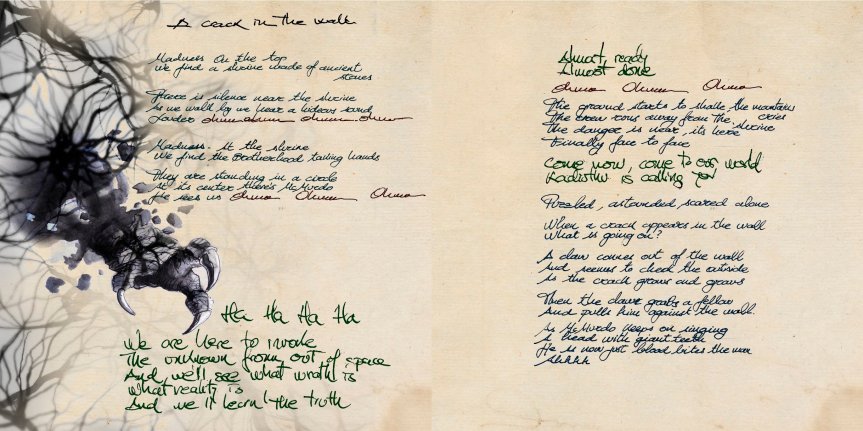 A crack in the wall
Madness On the top
We find a shrine made of ancient
stones
There is silence near the shrine
As we walk by we hear a hideous sound
Louder
Madness. At the shrine
We find the Brotherhood taking hands
They are standing in a circle
At its center there's McMurdo
He sees us
Ha Ha Ha Ha
We are here to invoke
The unknown from out of space
And we'll see what wrath is
What reality is
And we'll learn the truth
Almost ready
Almost done
The ground starts to shake the mountain
cries
The crew runs away from the shrine
The danger is near, its here
Finally face to face
Come now, come to our world
is calling you
Puzzled, astounded, scared alone
When a crack appears in the wall
What is going on?
A claw comes out of the wall
And seems to check the outside
As the crack grows and grows
Then the claw grabs a fellow
And pulls him against the wall.
As McMurdo keeps on singing
A head with giant teeth
He is now just blood bites the man
Ahhhh